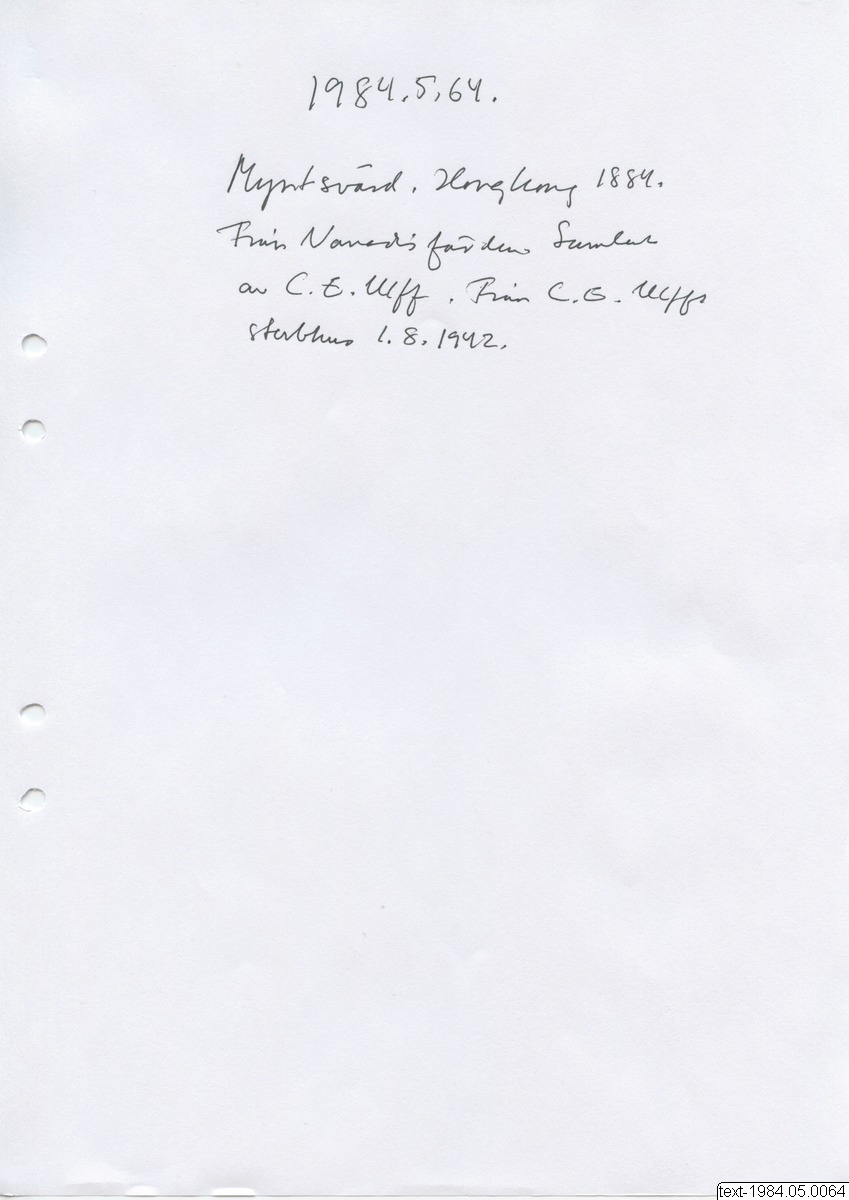 1984.5.64.
Myntsvärd. Hongkong 1884.
Från Vanadisfärden Samlat
av C. E. Ulff. Från C. E. Ulffs
sterbhus 1.8.1942.
text-1984.05.0064